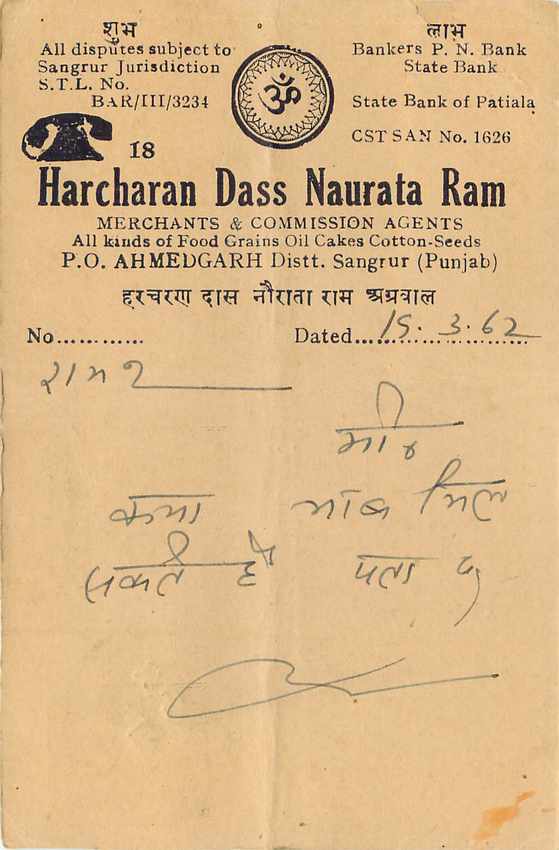 शुभ लाभ
All disputes subject to Bankers P. N. Bank
Sangrur Jurisdiction State Bank
S.T.L. No.
BAR/III/3234 State Bank of Patiala
ॐ
CST SAN No. 1626
18
Harcharan Dass Naurata Ram
MERCHANTS & COMMISSION AGENTS
All kinds of Food Grains Oil Cakes Cotton-Seeds
P.O. AHMEDGARH Distt. Sangrur (Punjab)
हरचरण दास नौराता राम अग्रवाल
No............ Dated...15.3.62
क्या भाव मिल
सकते है पता